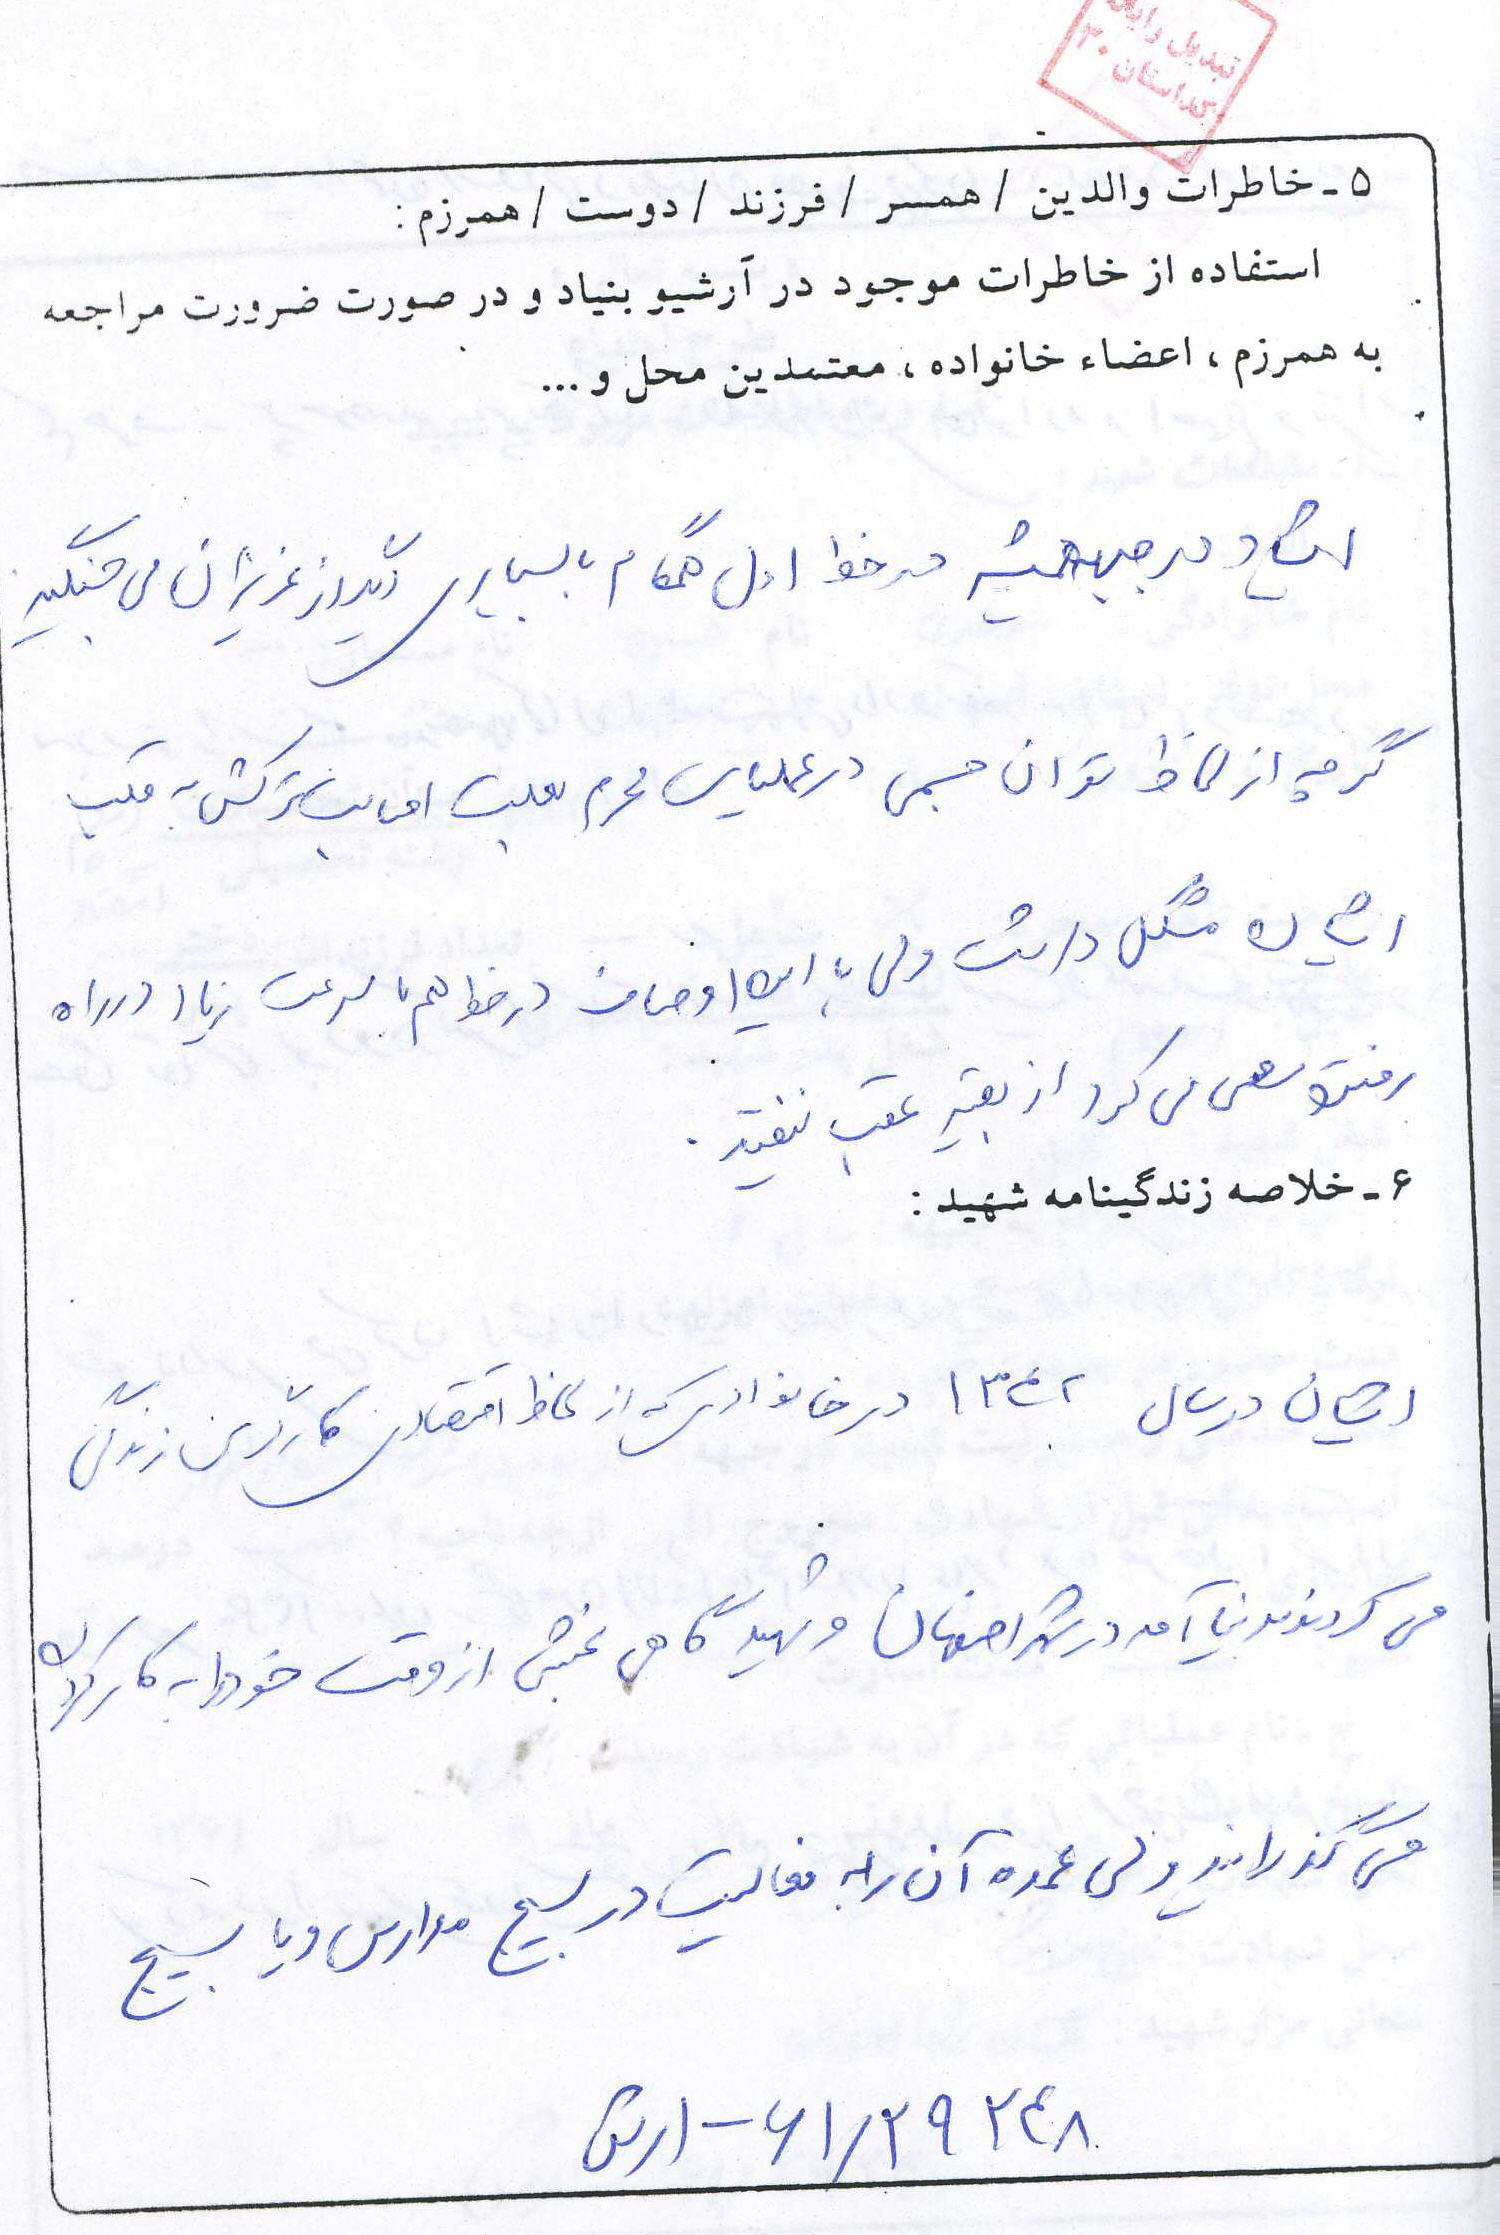 تبدیل رایان
کد استان ۳۰
۵ـ خاطرات والدین / همسر / فرزند / دوست / همرزم :
استفاده از خاطرات موجود در آرشیو بنیاد و در صورت ضرورت مراجعه
به همرزم ، اعضاء خانواده ، معتمدین محل و ...
در جبهه همیشه در خط اول همگام با بسیاری دیگر از عزیزان می جنگید
گرچه از لحاظ توان جسمی در عملیات محرم بعلت اصابت ترکش به قلب
ایشان مشکل داشت ولی با این اوصاف در خط هم با سرعت زیاد در راه
رفتن سعی می کرد از بقیه عقب نیفتد .
۶ـ خلاصه زندگینامه شهید :
ایشان در سال ۱۳۴۲ در خانواده ای که از لحاظ اقتصادی کارگری زندگی
می کردند بدنیا آمد در شهر اصفهان و شهید گاهی بخشی از وقت خود را به کار کردن
می گذراند ولی عمده آن را به فعالیت در بسیج مدارس و یا بسیج
۶۱/۲۹۲۴۸ - ارتش